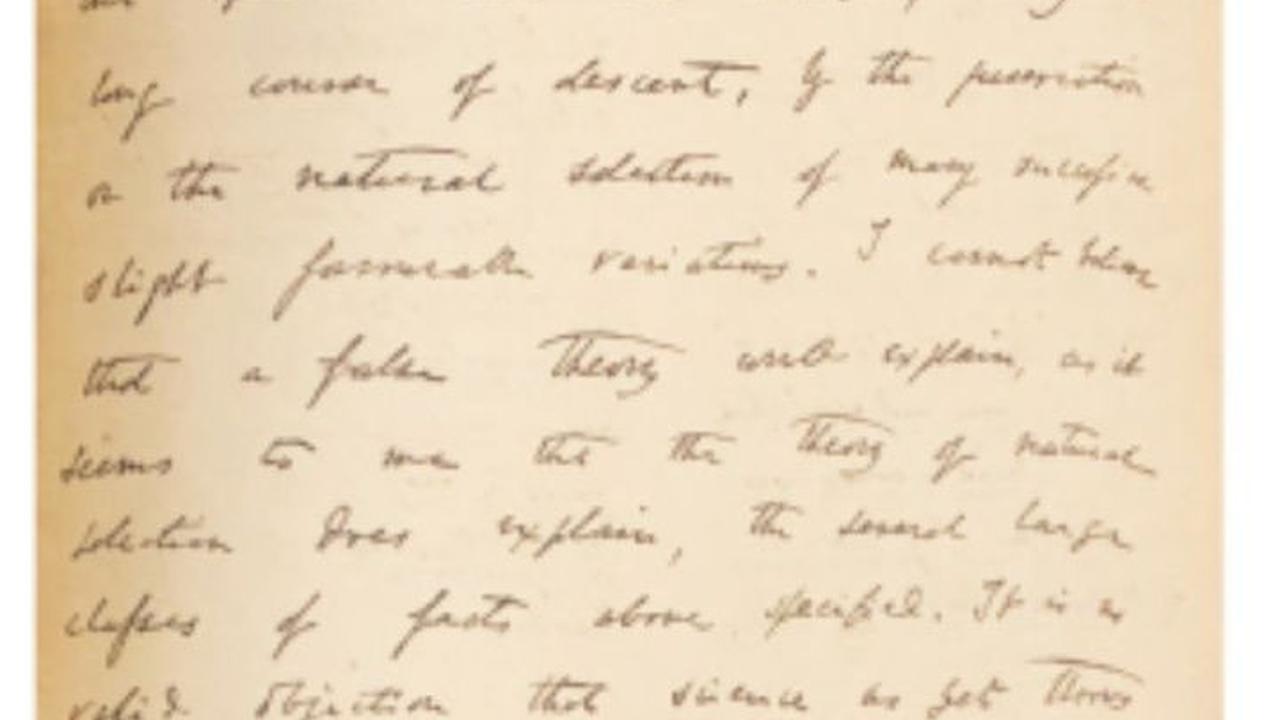 long course of descent, by the preservation
or the natural selection of many successive
slight favourable variations. I cannot believe
that a false theory would explain, as it
seems to me that the theory of natural
selection does explain, the several large
classes of facts above specified. It is no
valid objection that science as yet throws